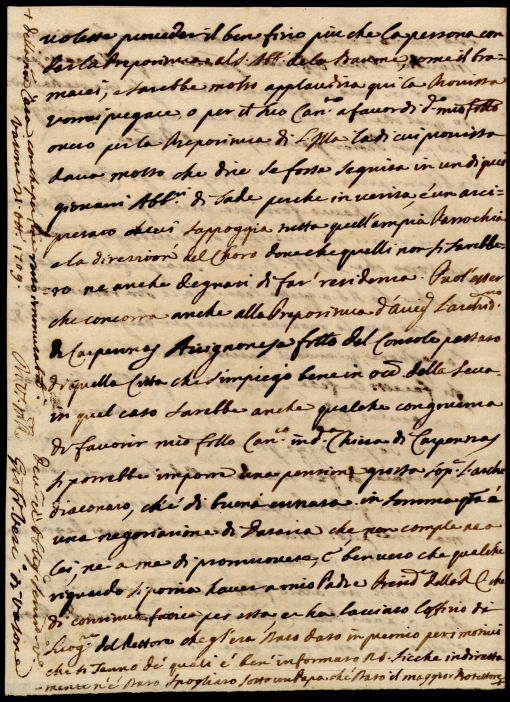 volesse proveder il benefizio più che la persona con
ferir la Prepositura al d. Abb. de la Baume, come il bra-
marei, e sarebbe molto applaudita qui la
pregare o per il suo Can.to a favor di d.o mio frllo
overo per la Prepositura di la di cui provista
dava molto che dire se fosse seguita in un di quei
giovani Abb.ti di Sade perche in verità è un arci-
presato a cui s'appoggia tutta quell'ampia Parrochia
e la direzione del Choro dove che quelli non si sarebbe-
ro ne anche degnati di far residenza. Puol esser
che concorra anche alla Prepositura d'Avig. l'archid.o
di Carpentras Avignonese frllo del Console passato
di quella Città che s'impiegò bene in occ.e della leva.
in quel caso sarebbe anche qualche congruenza
di favorir mio frllo Can.co in d.a Chiesa di Carpentras
si potrebbe imporre una pensione grossa sop.a l'archi-
diaconato, ch'è di buona entrata. in somma q.ta è
una negoziazione di Dataria che non comple ne a
Lei, ne a me di promuovere, è ben vero che qualche
riguardo si potria haver a mio Padre della R. C. che
di continuo fatica per essa et ha lasciato l'offizio di
Luog.te del Rettore che gl'era stato dato in premio per i motivi
che si sanno de quali è ben informato siche indiretta
mente n'è stato spogliato sotto un Papa che stato il maggior Protettore
+ della mia Casa
Vasone 21 8bre 1709
Gius. Vesc. di Vasone